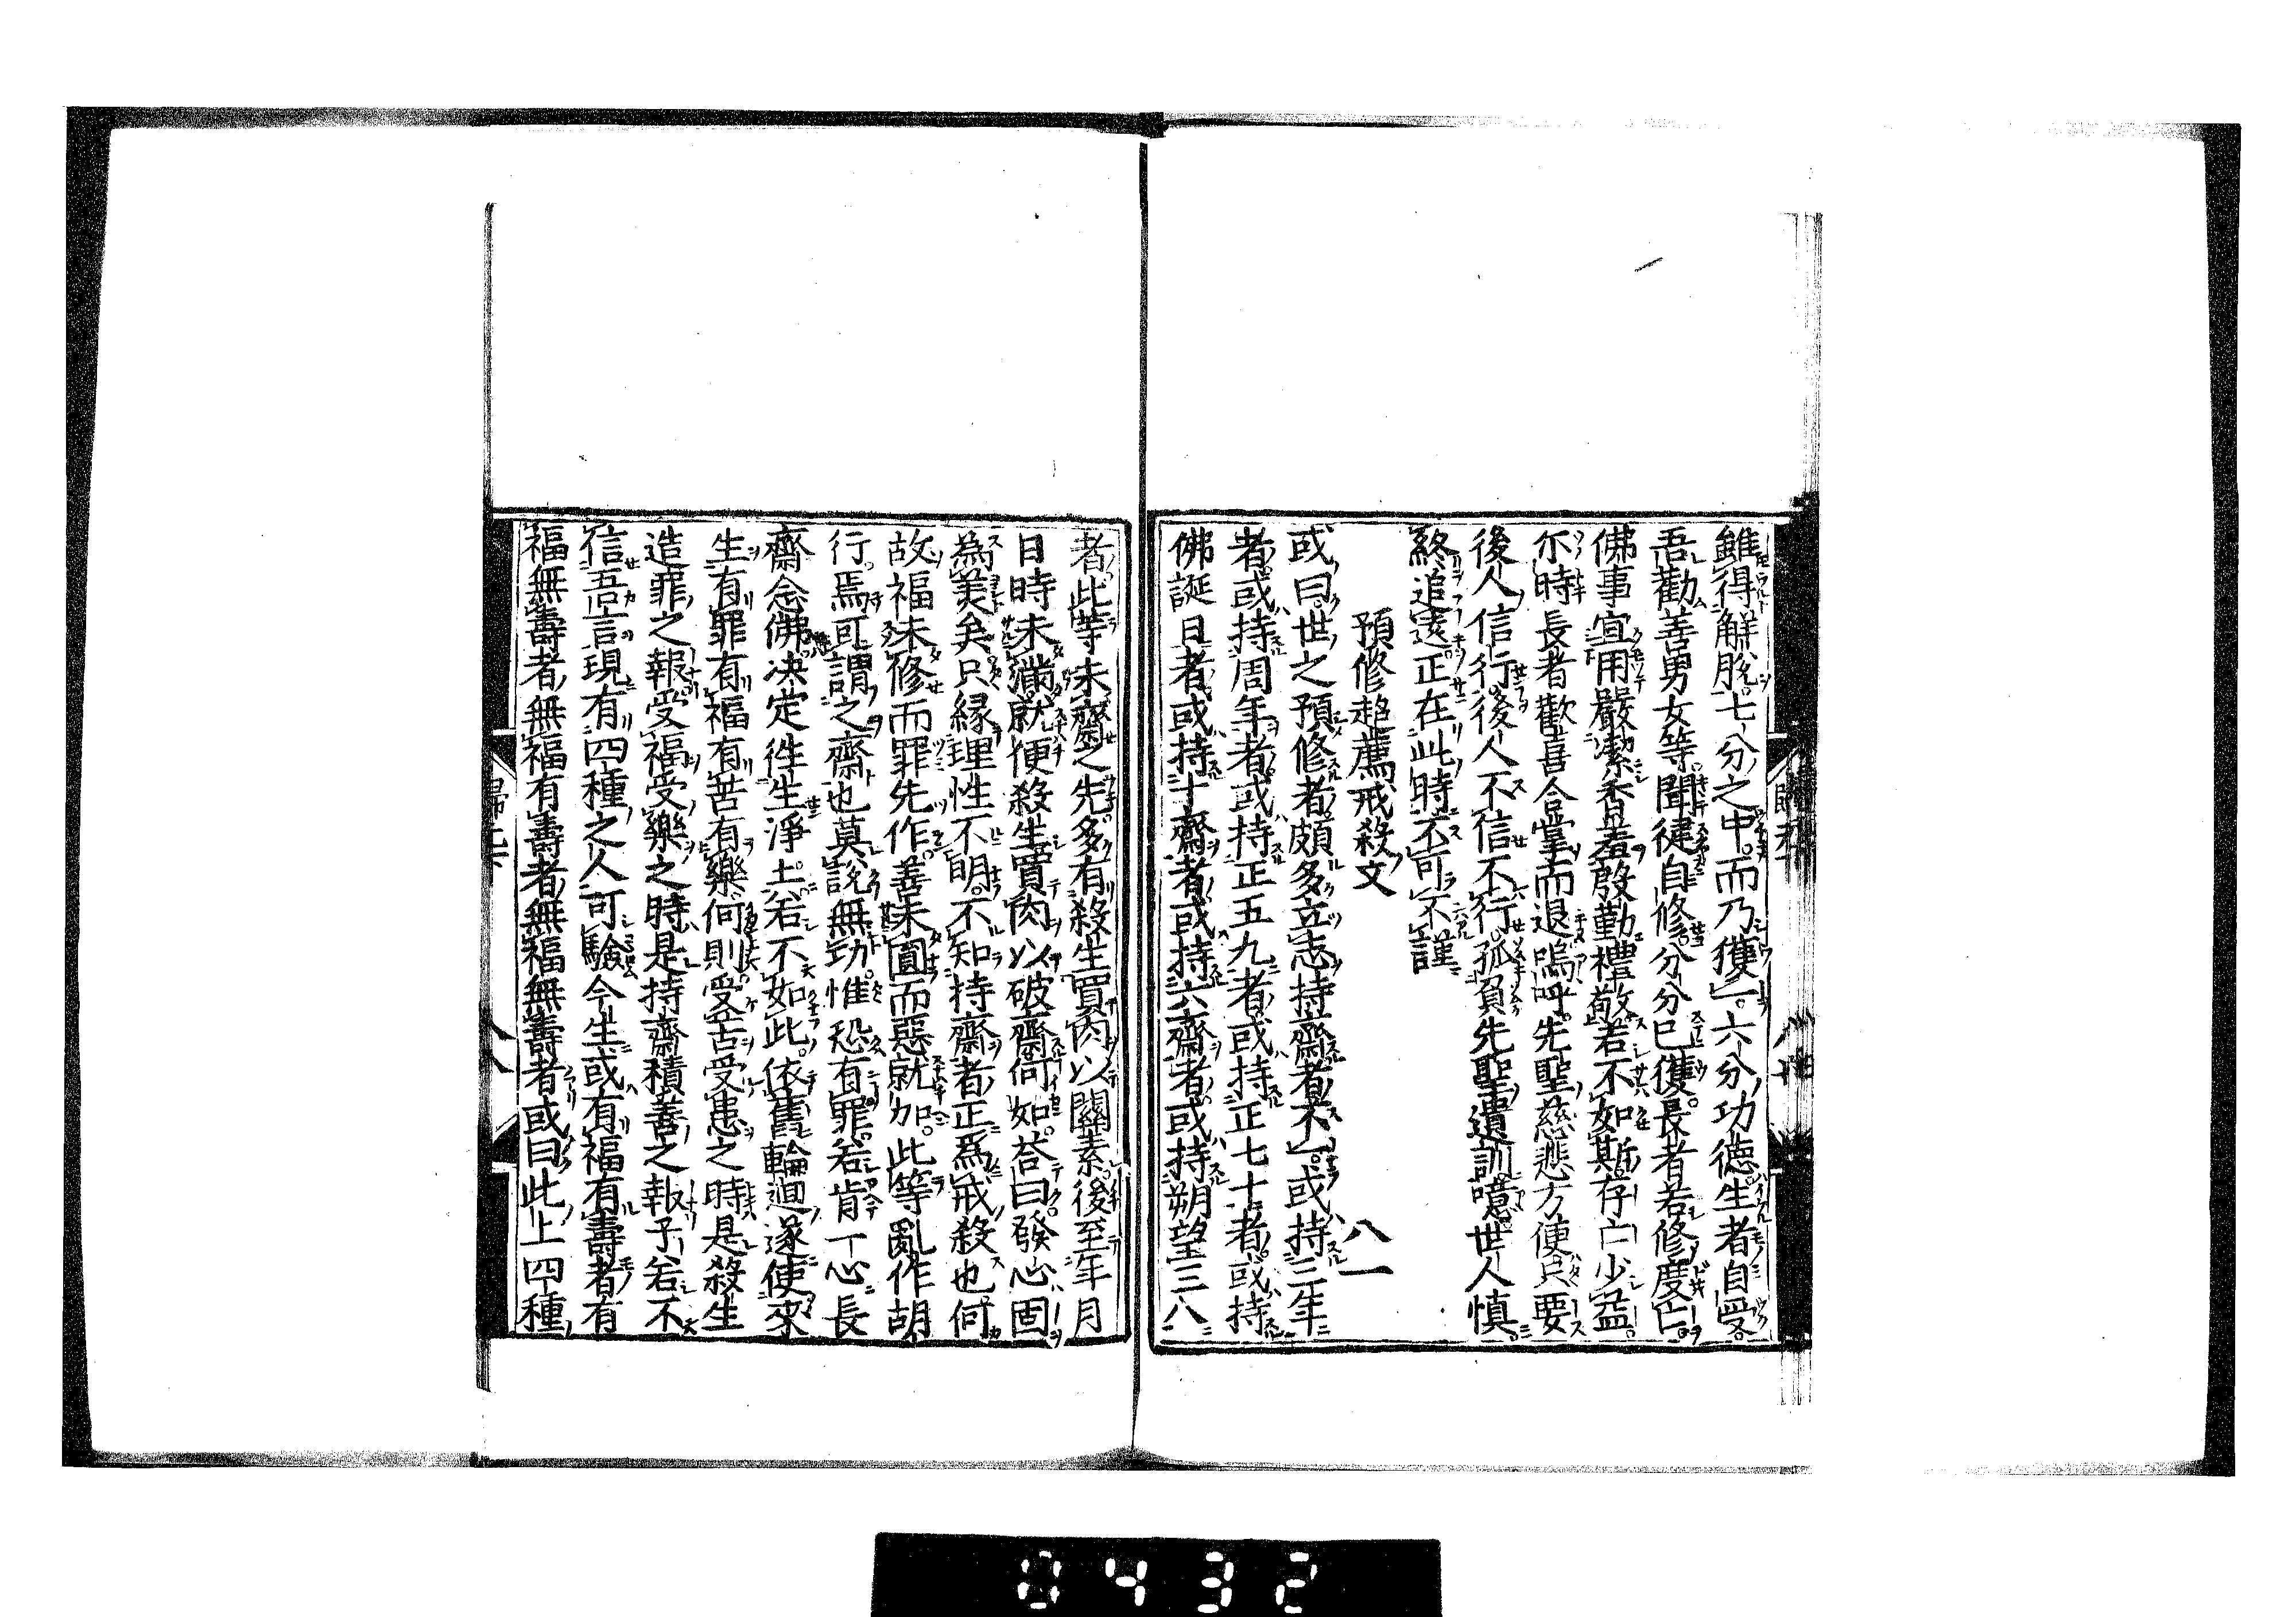 雖得解脱七分之中而乃獲一六分功德生者自受
吾勸善男女等聞徤自修分分已獲長者若修度亡
佛事宜用嚴潔香羞慇勤禮敬若不如斯存亡少益
尒時長者歡喜合掌而退嗚呼先聖慈悲方便只要
後人信行後人不信不行孤負先聖遺訓噫世人慎
終追遠正在此時不可不謹
預修趍薦戒殺文 八一
或曰世之預修者頗多立志持齋者不一或持三年
者或持周年者或持正五九者或持正七十者或持
佛誕日者或持十齋者或持六齋者或持朔望三八
者此等未齋之先多有殺生買肉以關素後至年月
日時未滿就便殺生買肉以破齋何如荅曰發心固
為美矣只縁理性不明不知持齋者正爲戒殺也何
故福未修而罪先作善未圓而惡就加此等亂作胡
行焉可謂之齋也莫說無功惟恐有罪若肯一心長
齋念佛决定徃生淨土若不如此依舊輪迴遂使來
生有罪有福有苦有樂何則受苦受患之時是殺生
造罪之報受福受樂之時是持齋積善之報予若不
信吾言現有四種之人可驗今生或有福有壽者有
福無壽者無福有壽者無福無壽者或曰此上四種
0432